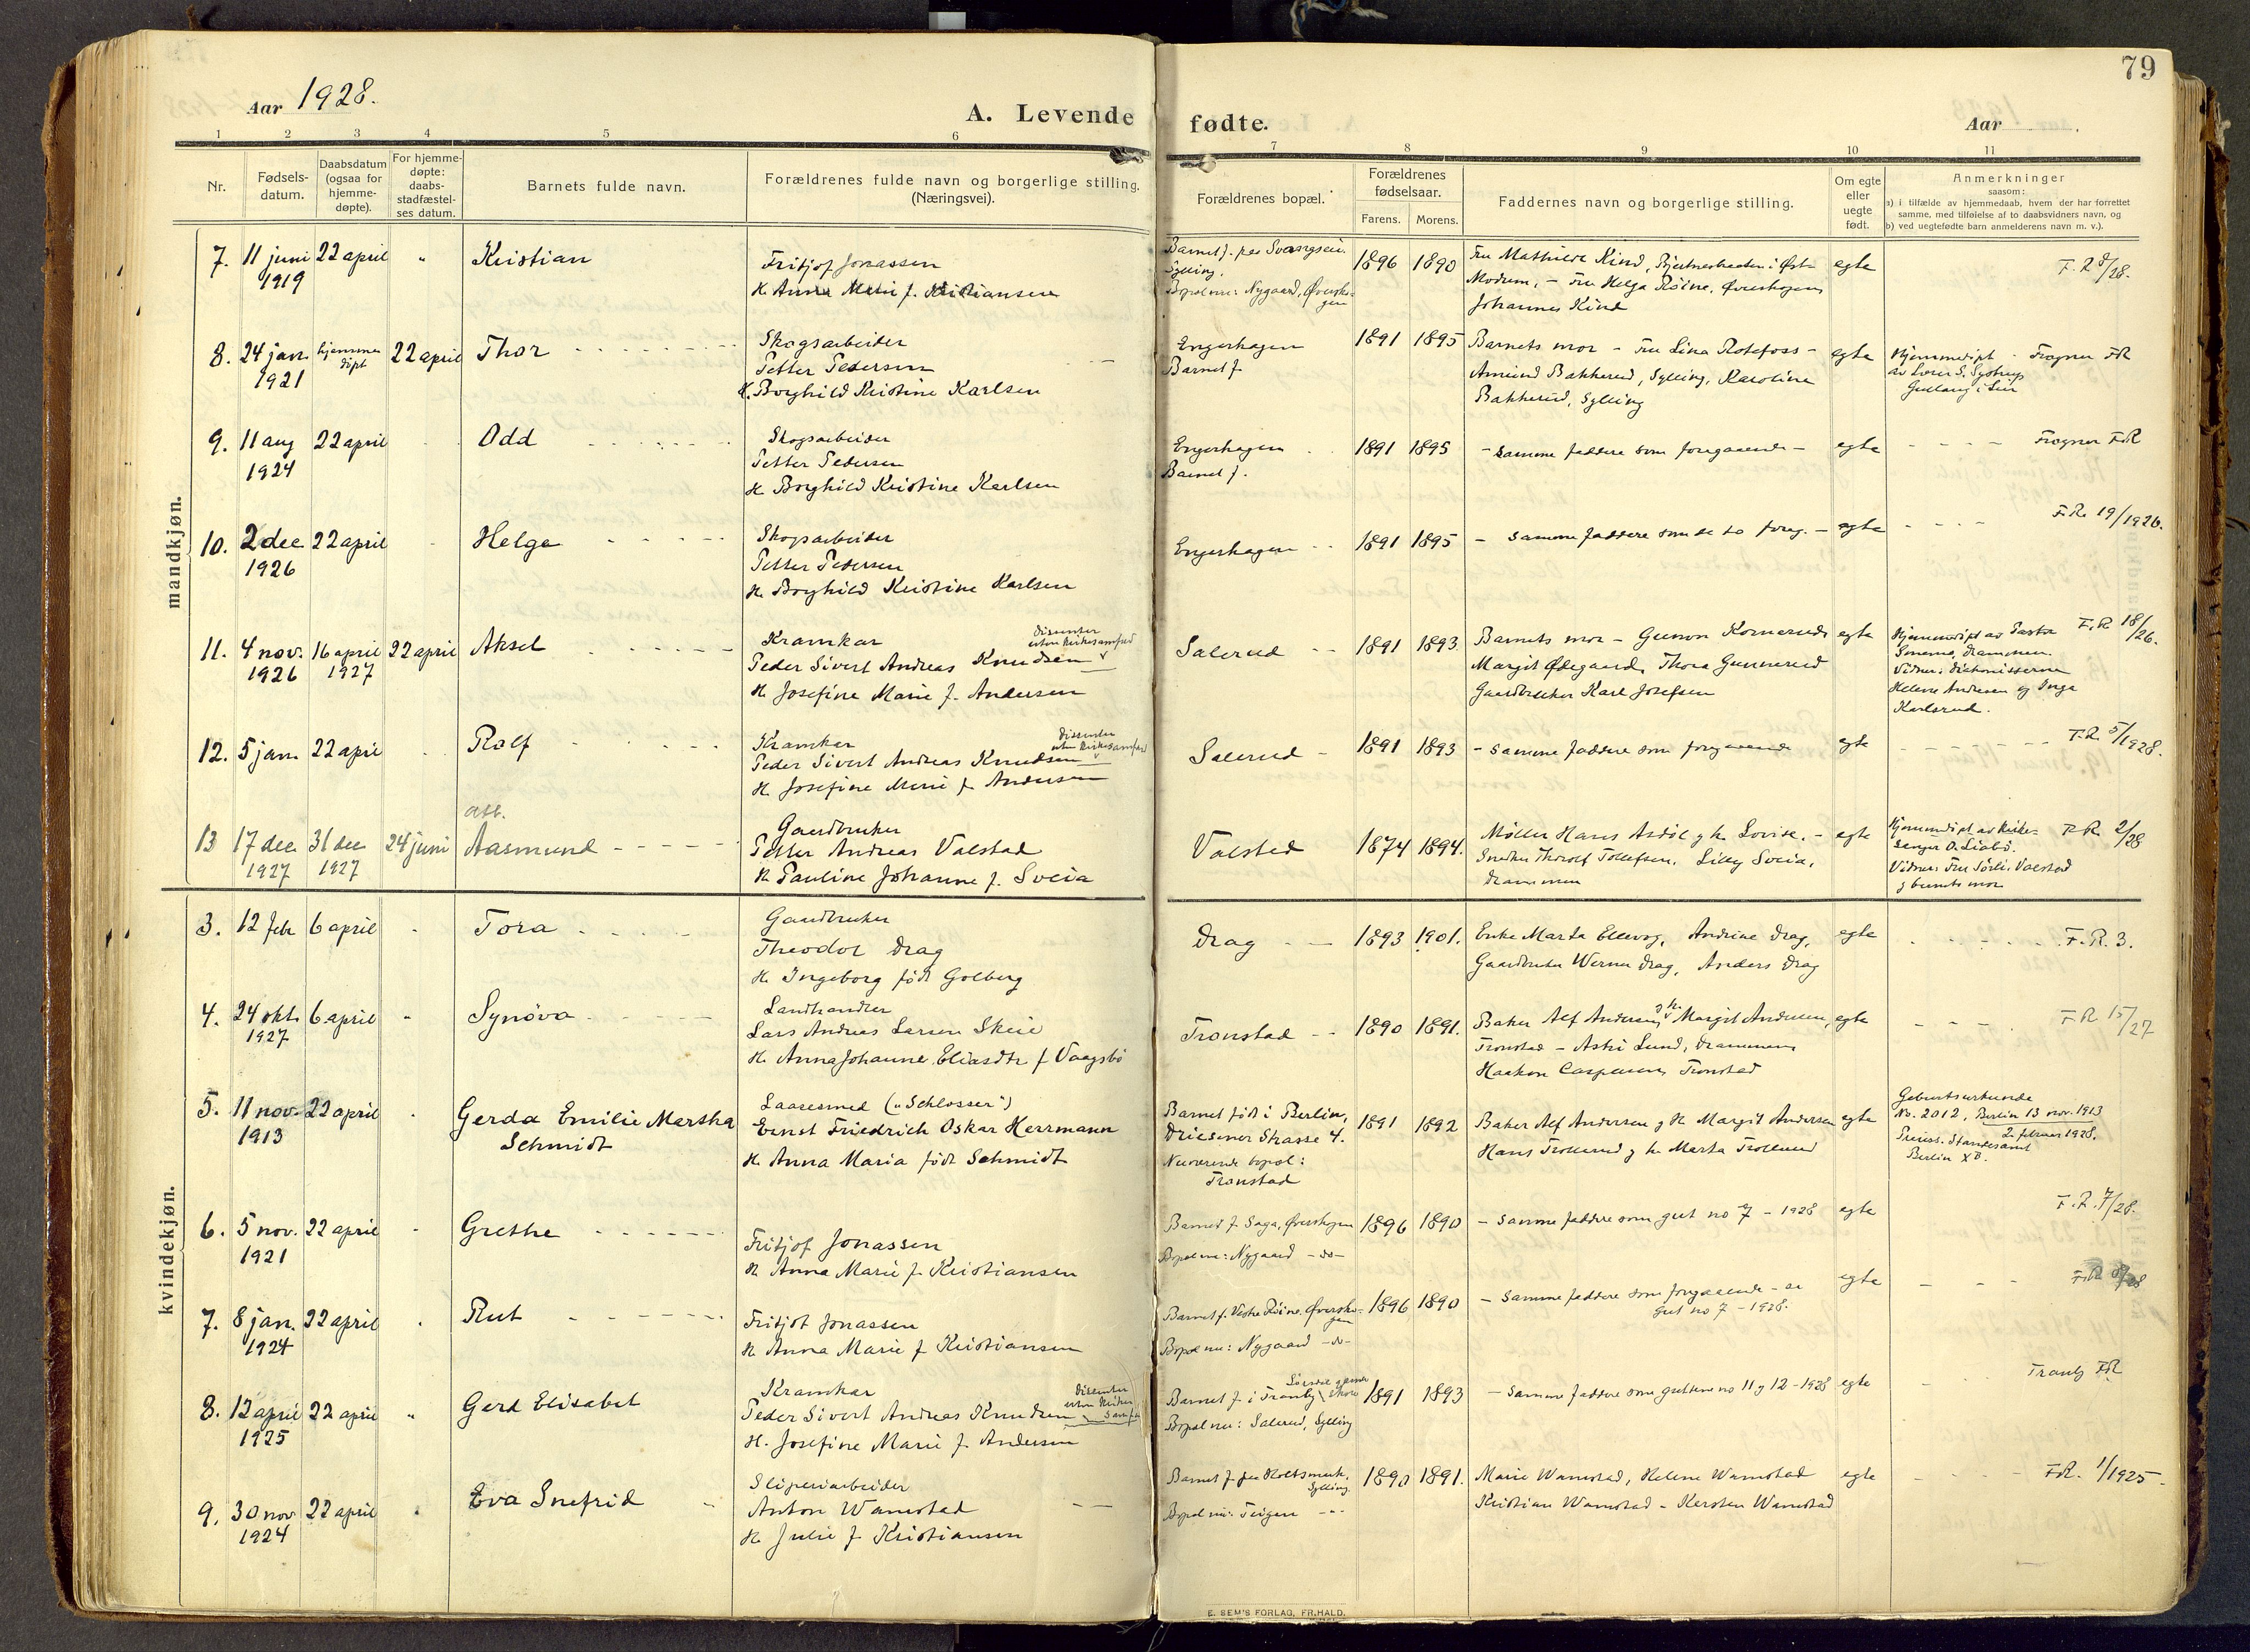 79
Aar 1928.
A. Levende fødte.
Aar
1 2 3 4 5 6 7 8 9 10 11
Nr.
Fødsels-
datum.
Daabsdatum
(ogsaa for
hjemme-
døpte).
For hjemme-
døpte:
daabs-
stadfæstel-
ses datum.
Barnets fulde navn.
Forældrenes fulde navn og borgerlige stilling.
(Næringsvei).
Forældrenes bopæl.
Forældrenes
fødselsaar.
Farens. Morens.
Faddernes navn og borgerlige stilling.
Om egte
eller
uegte
født.
Anmerkninger
saasom:
a) i tilfælde av hjemmedaab, hvem der har forrettet
samme, med tilføielse af to daabsvidners navn, og
b) ved uegtefødte barn anmelderens navn m. v.).
mandkjøn.
7. 11 juni 22 april " Kristian
1919
Fritjof Jonassen
H. Anna Marie f. Kristiansen
Barnet f. paa
Sylling.
Bopæl nu: Nygaard, Øversko-
gen
1896 1890
Fru Mathilde Kind, i Øst
Modum, - Fru Helga Røine, Øverskogen
Johannes Kind
egte
F.R 8/28.
8. 24 jan. hjemme 22 april Thor
1921 døpt
Skogsarbeider
Petter Pedersen
H. Borghild Kristine Karlsen
Engerhagen
Barnet f.
1891 1895
Barnets mor - Fru Lina Rotefoss -
Amund Bakkerud, Sylling, Karoline
Bakkerud, Sylling
egte
Hjemmedøpt
av S.
i Lier
Frogner FR
9. 11 aug 22 april Odd
1924
Skogsarbeider
Petter Pedersen
H. Borghild Kristine Karlsen
Engerhagen
Barnet f.
1891 1895
- samme faddere som foregaaende -
egte
Frogner FR
10. 2 dec. 22 april Helge
1926
Skogsarbeider
Petter Pedersen
H. Borghild Kristine Karlsen
Engerhagen
1891 1895
- samme faddere som de to foreg. -
egte
F.R. 19/1926.
11. 4 nov. 16 april 22 april Aksel
1926 1927
Kramkar
dissenter
uten kirkesamfund
Peder Sivert Andreas Knudsen
H. Josefine Marie f. Andersen
Salerud
1891 1893.
Barnets mor - Gunvor Kornerud,
Margit Ødegaard, Thora Gunnerud
Gaardbruker Karl Josefsen
egte
Hjemmedøpt av Pastor
Drammen.
Vidner: diakonisserne
Helene Andresen og Inga
Karlsrud.
F.R 18/26.
12. 5 jan. 22 april Rolf
Kramkar
dissenter
uten kirkesamfund
Peder Sivert Andreas Knudsen
H. Josefine Marie f. Andersen
Salerud
1891 1893
- samme faddere som foregaaende
egte
F.R. 5/1928.
att.
13 17 dec. 31 dec 24 juni Aasmund
1927 1927
Gaardbruker
Petter Andreas Valstad
H. Pauline Johanne f. Sveia
Valstad
1874 1894.
Møller Hans Asdøl og h. Lovise. -
Snedker Thorolf Tollefsen, Lilly Sveia,
Drammen
egte
Hjemmedøpt av kirke-
sanger O. Liabø.
Vidner: Fru Sørli, Valstad
og barnets mor
F.R. 2/28
kvindekjøn.
3. 12 febr 6 april Tora
Gaardbruker
Theodor Drag
H. Ingeborg født Golberg
Drag
1893 1901.
Enke Marta Ellevog, Andrine Drag,
Gaardbruker Werner Drag, Anders Drag
egte
F.R. 3.
4. 24 okt. 6 april " Synøva
1927
Landhandler
Lars Andreas Larsen Skeie
H. Anna Johanne Eliasdtr f Vaagsbø
Tronstad
1890 1891.
Baker Alf Andersen og h. Margit Andersen,
Tronstad - Astri Lund, Drammen
Haakon Caspersen, Tronstad
egte
FR 15/27
5. 11 nov. 22 april Gerda Emilie Martha
1913 Schmidt
Laasesmed ("Schlosser")
Ernst Friedrich Oskar Herrmann
H. Anna Maria født Schmidt
Barnet født i Berlin,
Driesener Strasse 4.
Nuværende bopæl:
Tronstad
1891 1892
Baker Alf Andersen og h. Margit Andersen
Hans Trollerud og h. Marta Trollerud
egte
Geburtsurkunde
No. 2012, Berlin 13 nov. 1913
2. februar 1928.
Preuss. Standesamt
Berlin X B.
6. 5 nov. 22 april Grethe
1921
Fritjof Jonassen
H. Anna Marie f. Kristiansen
Barnet f. Saga, Øverskogen
Bopæl nu: Nygaard - do -
1896 1890
- samme faddere som gut no 7 - 1928
egte
F.R. 7/28.
7. 8 jan. 22 april Rut
1924
Fritjof Jonassen
H. Anna Marie f Kristiansen
Barnet f. Vestre Røine, Øversko-
gen
Bopæl nu: Nygaard - do -
1896 1890
- samme faddere som foregaaende -
Gut no 7 - 1928.
egte
8. 12 april 22 april " Gerd Elisabet
1925
Kramkar
dissenter
uten kirke
samf.
Peder Sivert Andreas Knudsen
H. Josefine Marie f. Andersen
Barnet f. i Tranby
Bopæl nu: Salerud, Sylling
1891 1893
- samme faddere som guttene no 11 og 12 - 1928
egte
Tranby FR
9. 30 nov 22 april Eva Snefrid
1924
Sliperiarbeider
Anton Wamstad
H. Julie f. Kristiansen
Barnet f. paa Holtsmark,
Sylling
Bopæl nu: Teigen
1890 1891.
Marie Wamstad, Helene Wamstad
Kristian Wamstad - Kersten Wamstad
egte
F.R. 1/1925.
E. SEM'S FORLAG, FR.HALD.